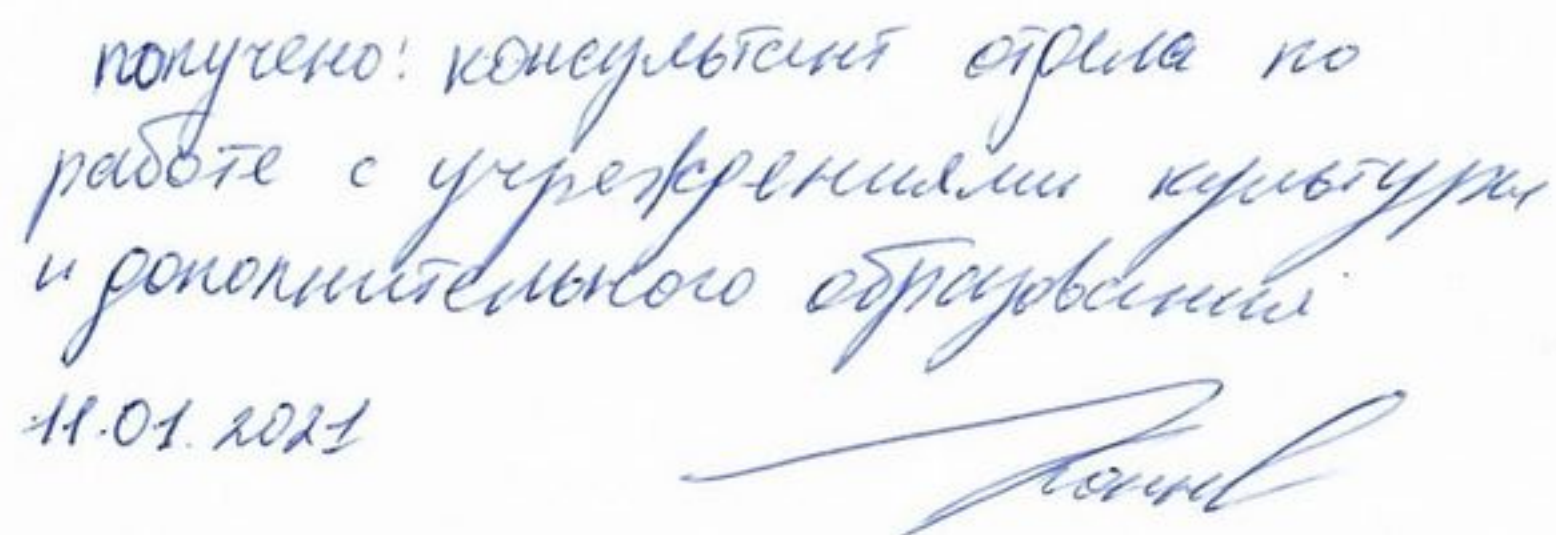 получено: консультант отдела по
работе с учреждениями культуры
и дополнительного образования
11.01.2021